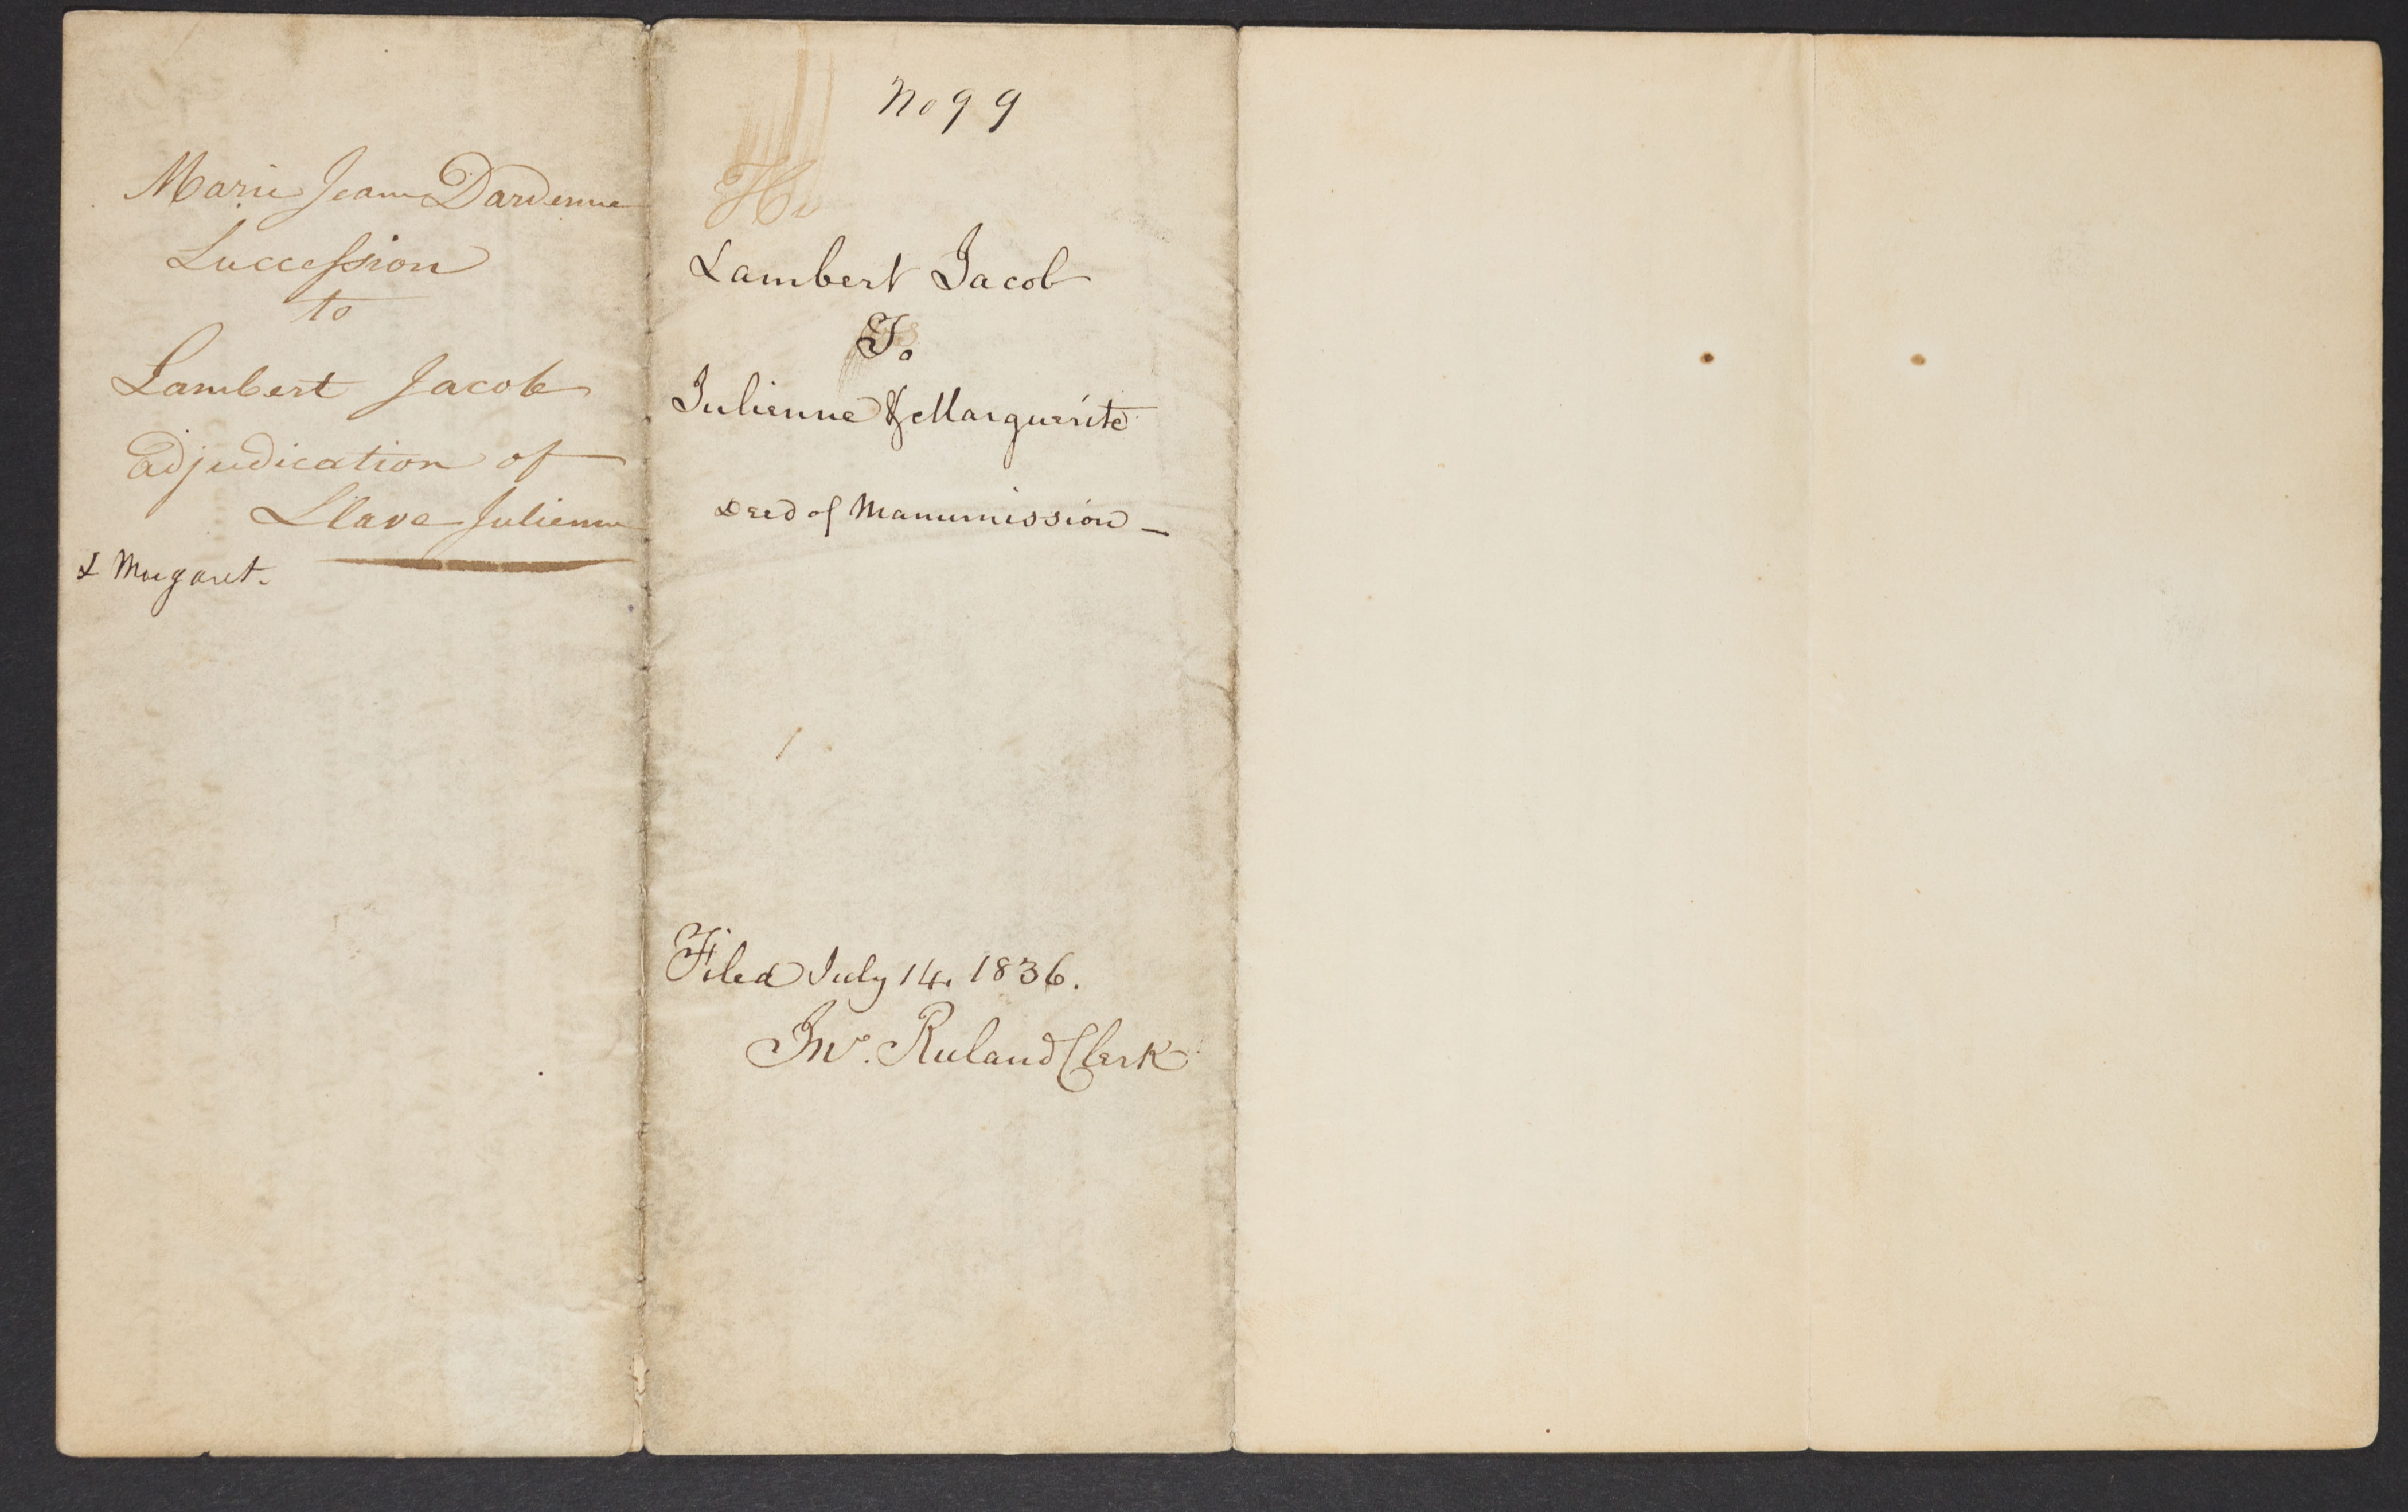 Marie Jeanne Dardenne
Succession
to
Lambert Jacob
adjudication of
Slave Julienne
& Margaret.
No 99
Lambert Jacob
To
Julienne & Marguerite
Deed of Manumission —
Filed July 14. 1836.
Jno. Ruland Clerk